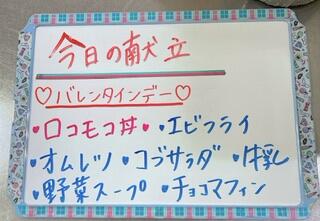 今日の献立
♡バレンタインデー♡
・ロコモコ丼 ・エビフライ
・オムレツ ・コブサラダ ・牛乳
・野菜スープ ・チョコマフィン